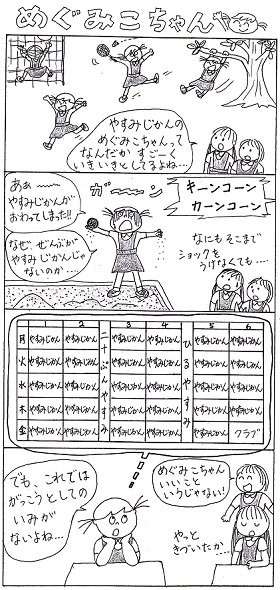 めぐみこちゃん
やすみじかんの
めぐみこちゃんって
なんだか すごーく
いきいきとしてるよね…
キーンコーン
カーンコーン
ガーーン
あぁ〜〜
やすみじかんが
おわってしまった!!
なぜ、ぜんぶが
やすみ じかんじゃ
ないのか…
なにもそこまで
ショックを
うけなくても…
1 2 二十ぷんやすみ 3 4 ひるやすみ 5 6
月 やすみじかん やすみじかん やすみじかん やすみじかん やすみじかん やすみじかん
火 やすみじかん やすみじかん やすみじかん やすみじかん やすみじかん やすみじかん
水 やすみじかん やすみじかん やすみじかん やすみじかん やすみじかん やすみじかん
木 やすみじかん やすみじかん やすみじかん やすみじかん やすみじかん やすみじかん
金 やすみじかん やすみじかん やすみじかん やすみじかん やすみじかん クラブ
めぐみこちゃん
いいこと
いうじゃない!
でも、これでは
がっこうとしての
いみが
ないよね…
やっと
きづいたか…